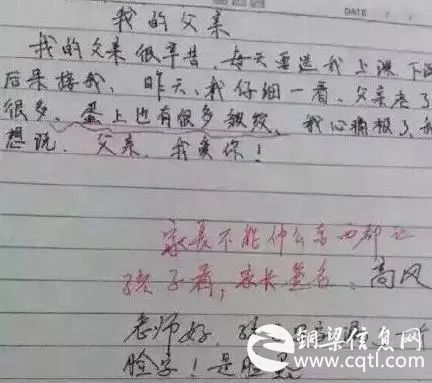 我的父亲
DATE
我的父亲很辛苦、每天要送我上课、下课
后来接我、昨天、我仔细一看、父亲老了
很多、蛋上也有很多皱纹、我心痛极了、我
想说、父亲、我爱你!
家长不能什么东西都让
孩子看,家长签名、高风
老师好,孩
脸字!是脸
铜梁信息网
www.cqtl.com